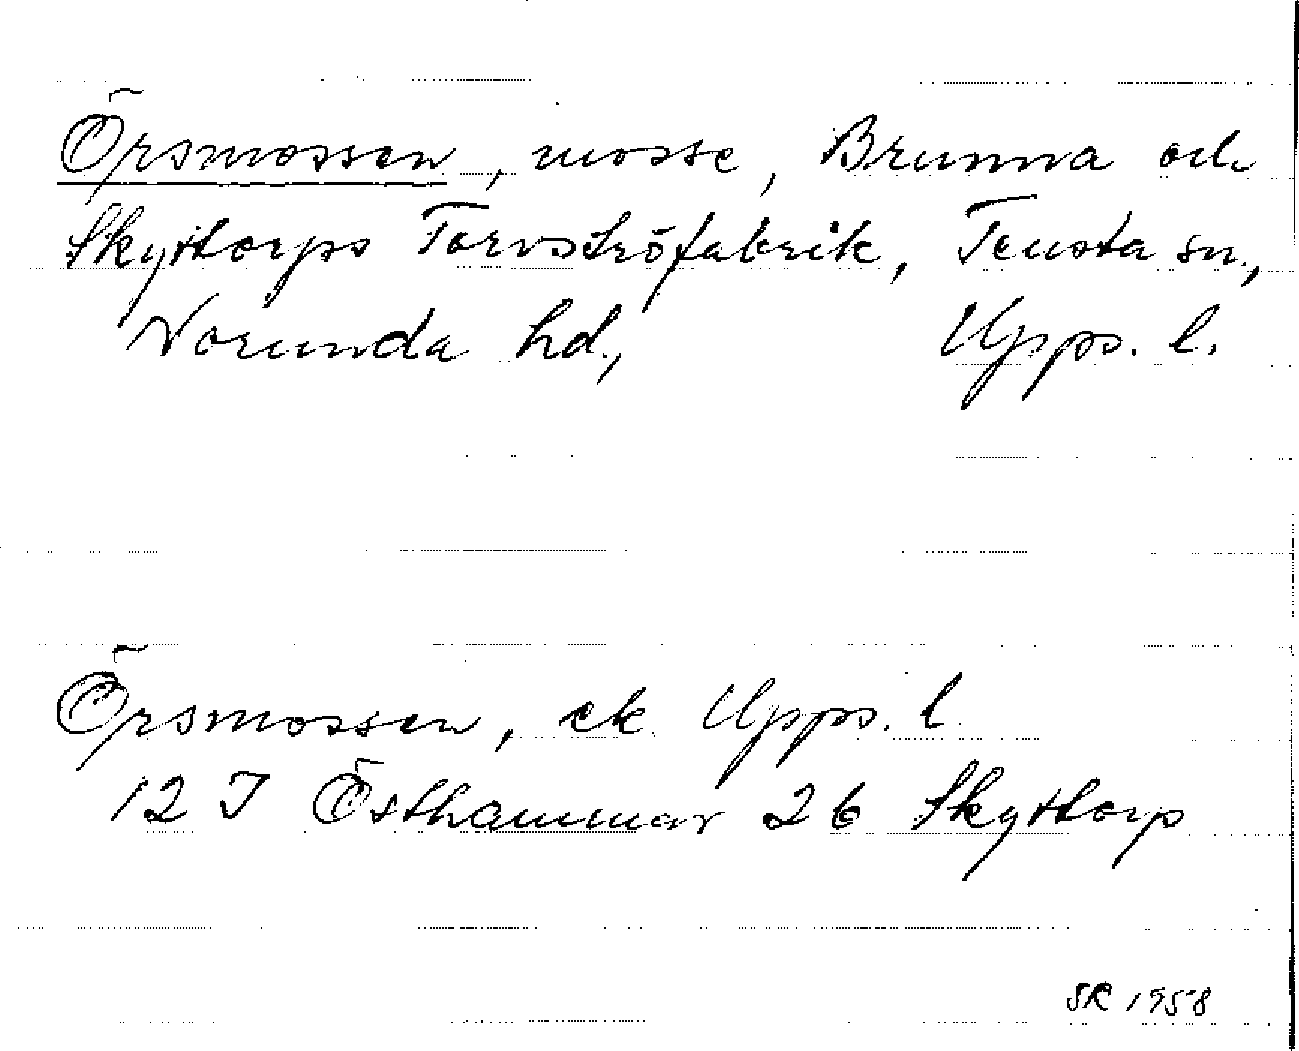 Örsmossen, mosse, Brunna och
Skyttorps Torvströfabrik, Tensta sn.,
Norunda hd., Upps. l.
Örsmossen, ek Upps. l.
12 I Östhammar 26 Skyttorp
SR 1958